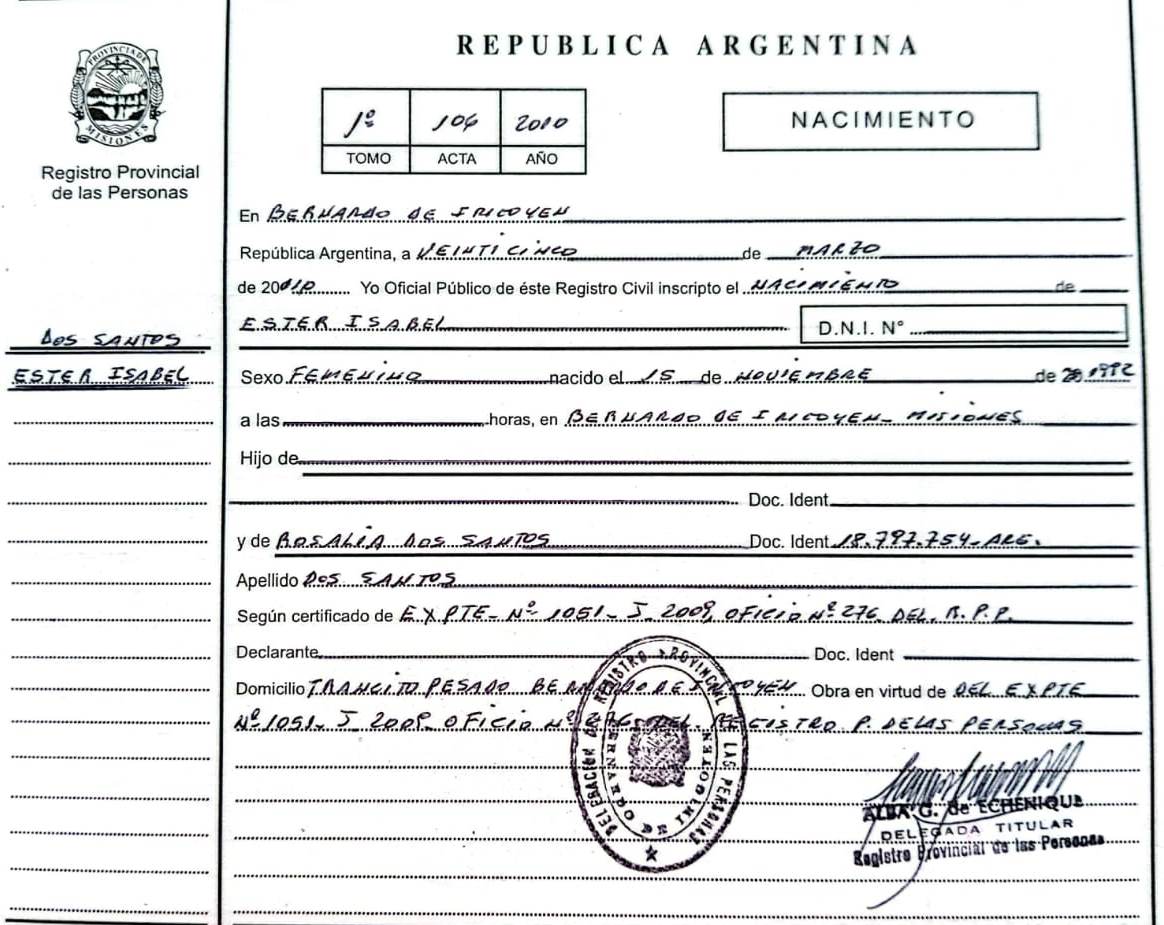 PROVINCIA DE MISIONES
Registro Provincial
de las Personas
DOS SANTOS
ESTER ISABEL
REPUBLICA ARGENTINA
1º 104 2010
TOMO ACTA AÑO
NACIMIENTO
En BERNARDO DE IRIGOYEN
República Argentina, a VEINTICINCO de MARZO
de 2010 Yo Oficial Público de éste Registro Civil inscripto el NACIMIENTO de
ESTER ISABEL D.N.I. N°
Sexo FEMENINO nacido el 15 de NOVIEMBRE de 1992
a las horas, en BERNARDO DE IRIGOYEN - MISIONES
Hijo de
Doc. Ident
y de ROSALIA DOS SANTOS Doc. Ident 18.797.754-ARG.
Apellido DOS SANTOS
Según certificado de EXPTE- Nº 1051- J- 2009, OFICIO Nº 276 DEL. R.P.P.
Declarante Doc. Ident
Domicilio TRANCITO PESADO BERNARDO DE IRIGOYEN Obra en virtud de DEL EXPTE
Nº 1051- J- 2009- OFICIO Nº DEL REGISTRO P. DE LAS PERSONAS
DELEGACIÓN DEL REGISTRO PROVINCIAL DE LAS PERSONAS
BERNARDO DE IRIGOYEN
ALBA G. de ECHENIQUE
DELEGADA TITULAR
Registro Provincial de las Personas